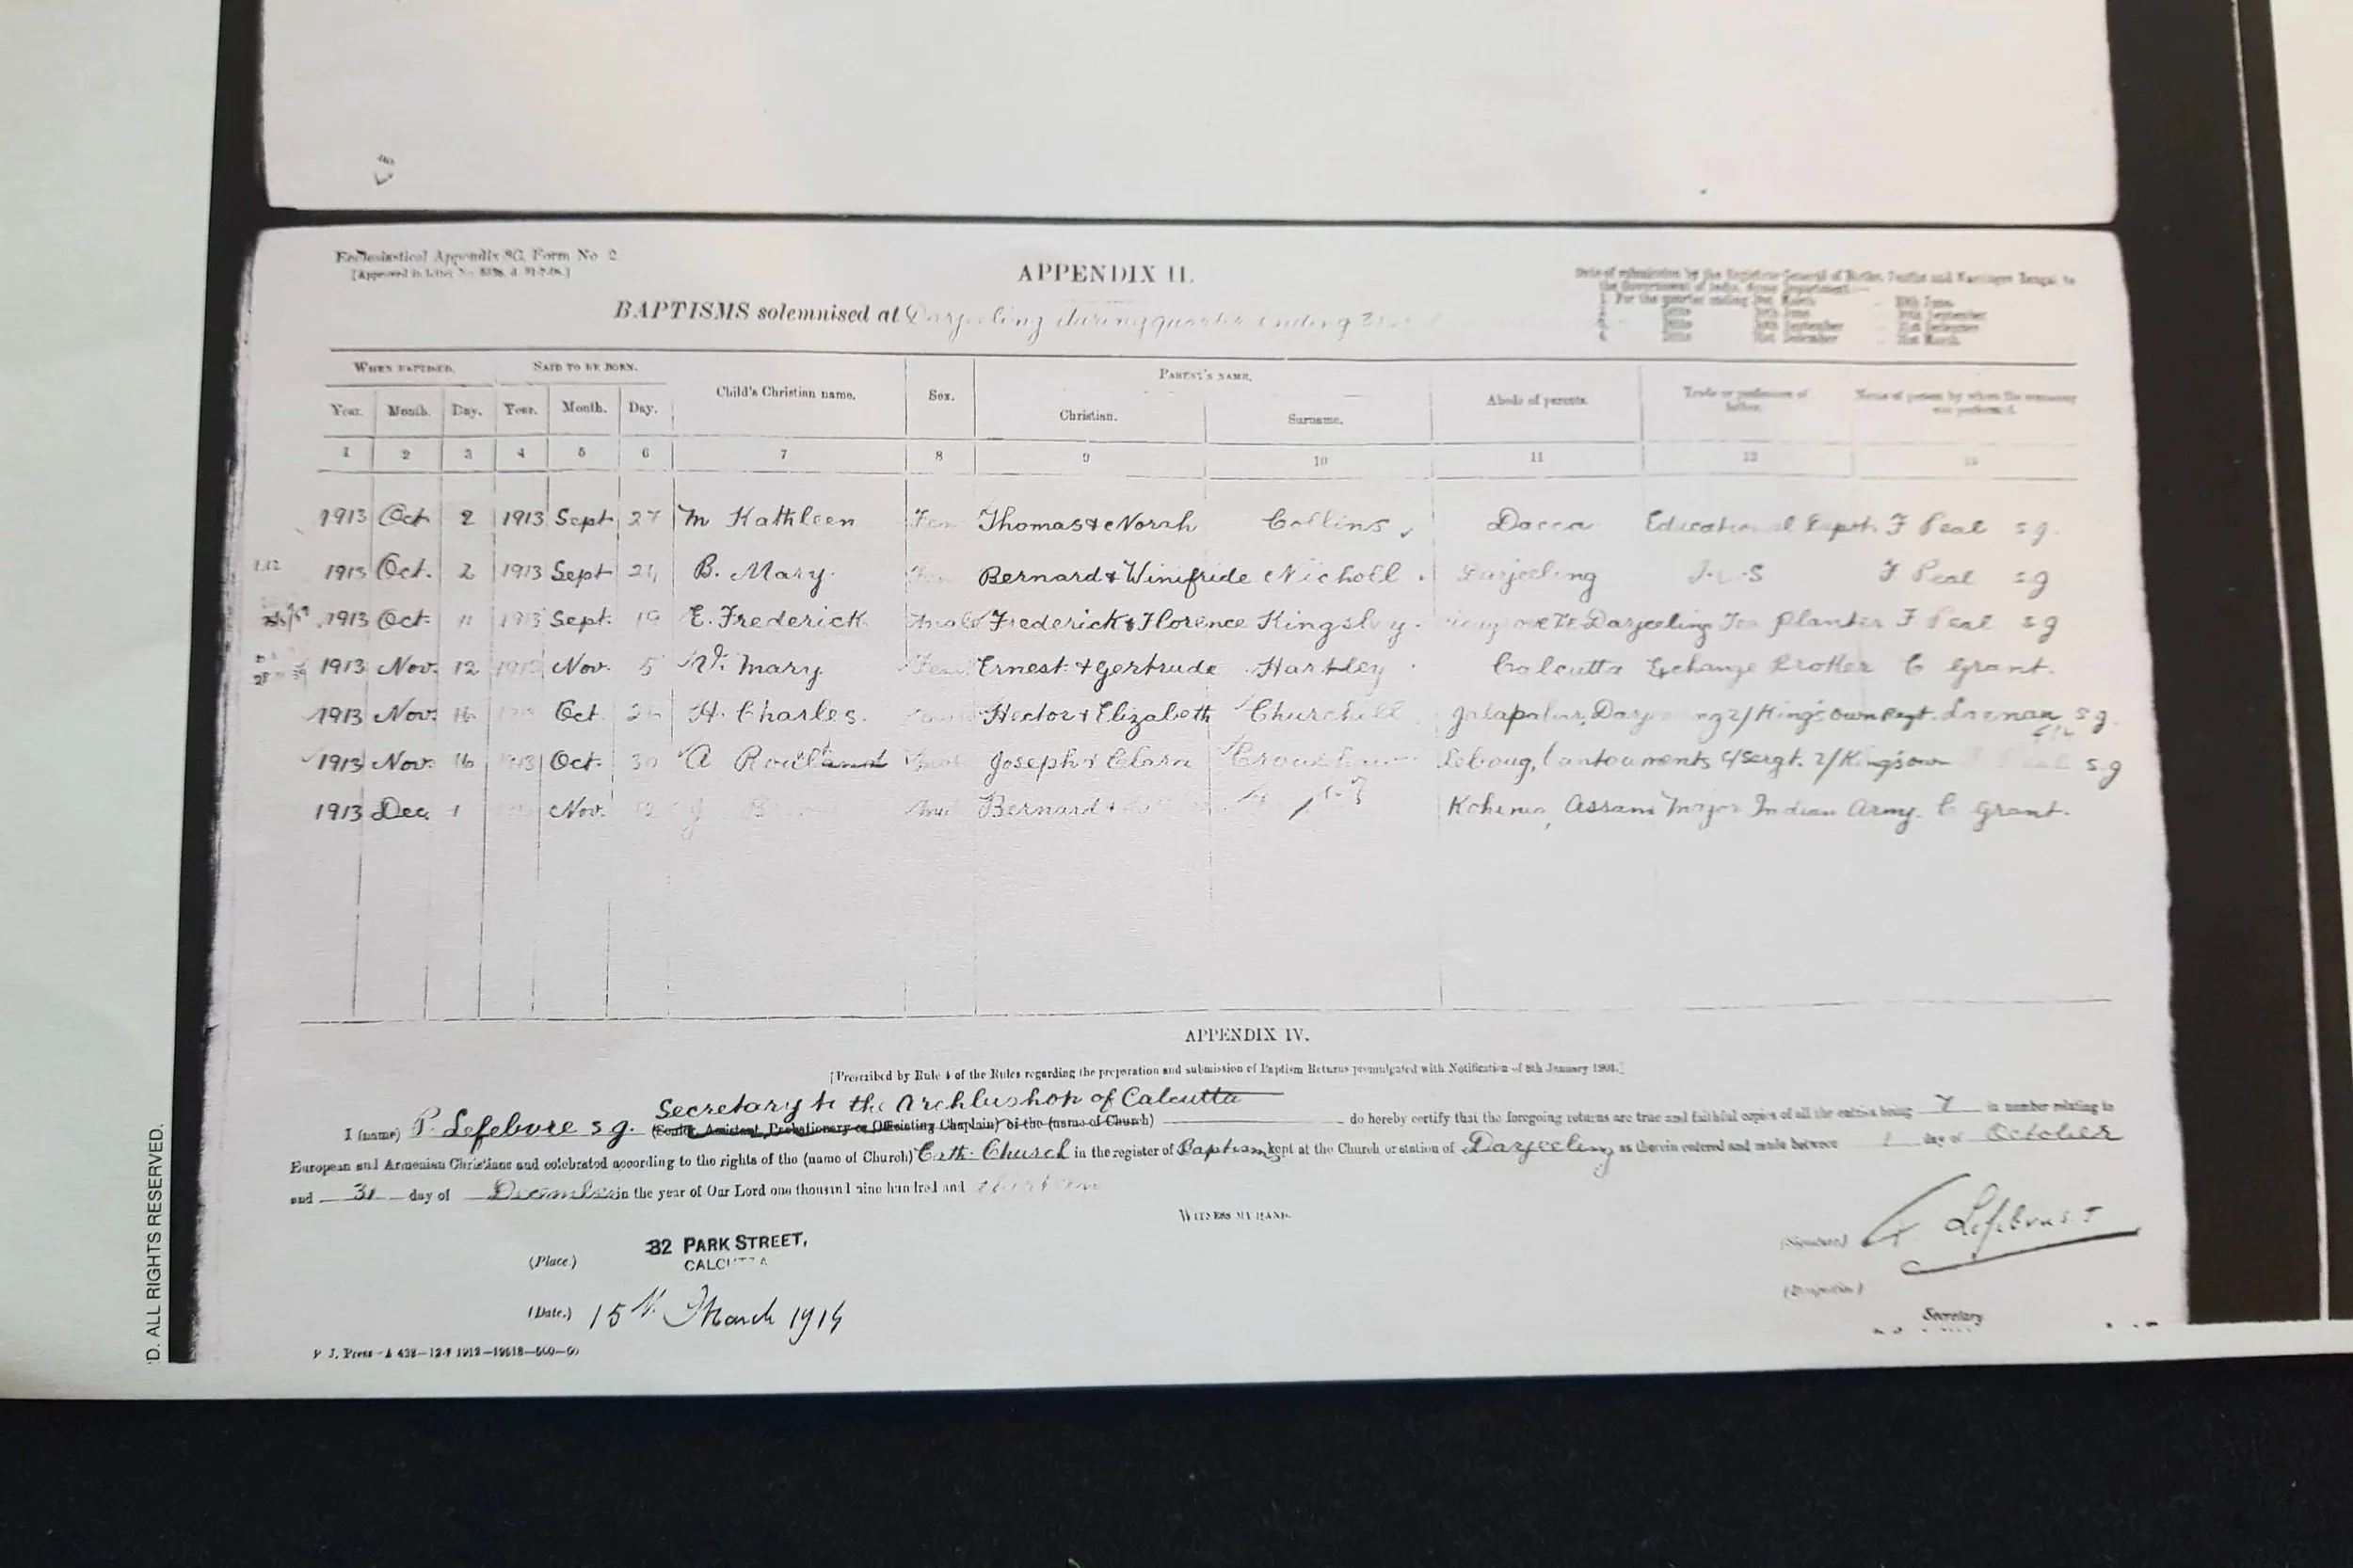 Ecclesiastical Appendix 8C, Form No 2
APPENDIX II.
BAPTISMS solemnised at Darjeeling during quarter ending 31
Date of submission by the Registrar General of Births, Deaths and Marriages Bengal to
the Government of India, Home Department:—
1. For the quarter ending 31st March
WHEN BAPTISED. SAID TO BE BORN. Child's Christian name. Sex. PARENT'S NAME. Abode of parents. Trade or profession of father. Name of person by whom the ceremony was performed.
Year. Month. Day. Year. Month. Day. Christian. Surname.
1 2 3 4 5 6 7 8 9 10 11 12 13
1913 Oct 2 1913 Sept 27 M Kathleen Fem Thomas & Norah Collins Dacca Educational Dept. F Peal s g.
1913 Oct. 2 1913 Sept B. Mary. Fem Bernard & Winifride Nicholl Darjeeling F Peal s g
1913 Oct 11 1913 Sept. 19 E. Frederick Male Frederick & Florence Kingsley. Darjeeling Tea Planter F Peal s g
1913 Nov. 12 1913 Nov. 5 W. Mary. Fem Ernest & Gertrude Hartley Calcutta Exchange Broker C Grant.
1913 Nov. 16 Oct. 26 H. Charles. Hector & Elizabeth Churchill Jalapahar, Darjeeling 2/King's Own Regt. s g.
1913 Nov. 16 1913 Oct. 30 A Rowland Joseph & Clara Lebong, Cantonments c/Sergt. 2/King's own s g
1913 Dec. 1 Nov. 12 J Bernard & Kohima, Assam Major Indian Army. C Grant.
APPENDIX IV.
[Prescribed by Rule 4 of the Rules regarding the preparation and submission of Baptism Returns promulgated with Notification of 8th January 1901.]
Secretary to the Archbishop of Calcutta
I (name) P. Lefebvre s g. (Senior, Assistant, Probationary or Officiating Chaplain) of the (name of Church) do hereby certify that the foregoing returns are true and faithful copies of all the entries being 7 in number relating to
European and Armenian Christians and celebrated according to the rights of the (name of Church) Cath. Church in the register of Baptisms kept at the Church or station of Darjeeling as therein entered and made between 1 day of October
and 31 day of December in the year of Our Lord one thousand nine hundred and thirteen
WITNESS MY HAND.
(Place) 32 PARK STREET,
CALCUTTA
(Signature) Lefebvre
(Designation)
(Date.) 15th March 1914
Secretary
P J. Press—A 438—12-7 1912—19618—600—
'D. ALL RIGHTS RESERVED.